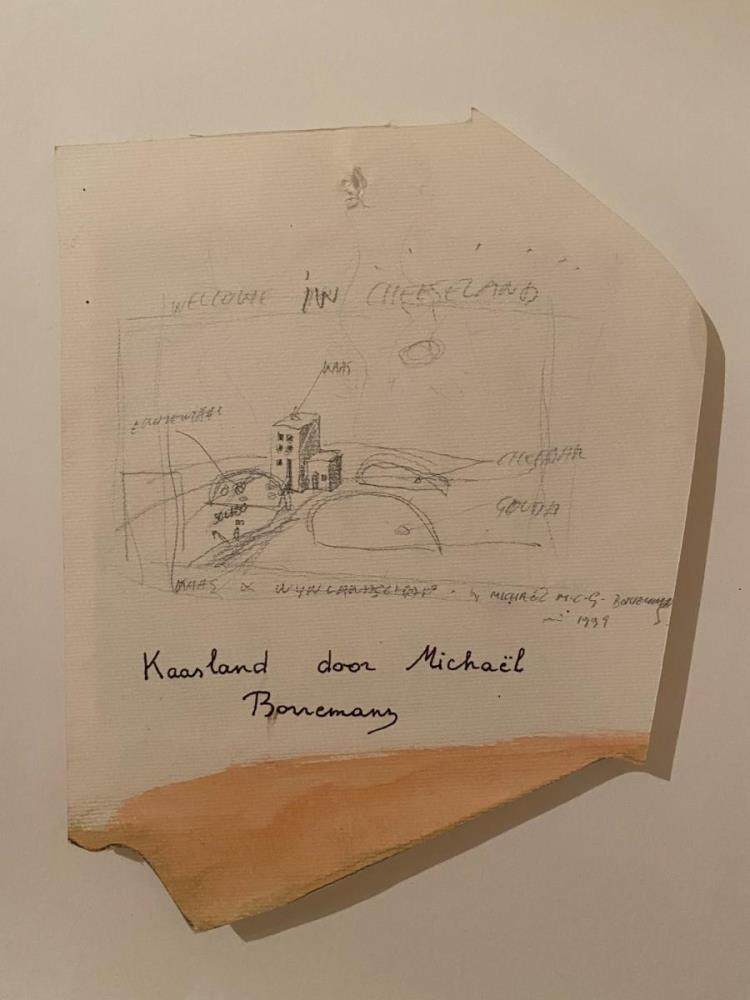 WELCOME IN CHEESELAND
KAAS
CHEDDAR
GOUDA
KAAS & WIJNLANDSCHAP . by MICHAËL M.C.G. BORREMANS
1999
Kaasland door Michaël
Borremans